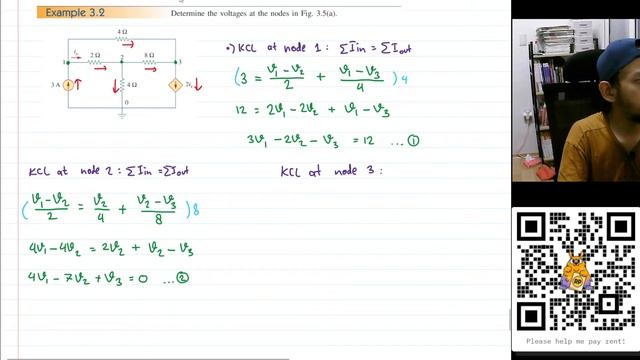 Example 3.2 Determine the voltages at the nodes in Fig. 3.5(a).
4 Ω
1 2 Ω 2 8 Ω 3
3 A 4 Ω
0
•) KCL at node 1 : ΣIin = ΣIout
(3 = (v₁ − v₂)/2 + (v₁ − v₃)/4) 4
12 = 2v₁ − 2v₂ + v₁ − v₃
3v₁ − 2v₂ − v₃ = 12 ... ①
KCL at node 2 : ΣIin = ΣIout
((v₁ − v₂)/2 = v₂/4 + (v₂ − v₃)/8) 8
4v₁ − 4v₂ = 2v₂ + v₂ − v₃
4v₁ − 7v₂ + v₃ = 0 ... ②
KCL at node 3 :
Please help me pay rent!